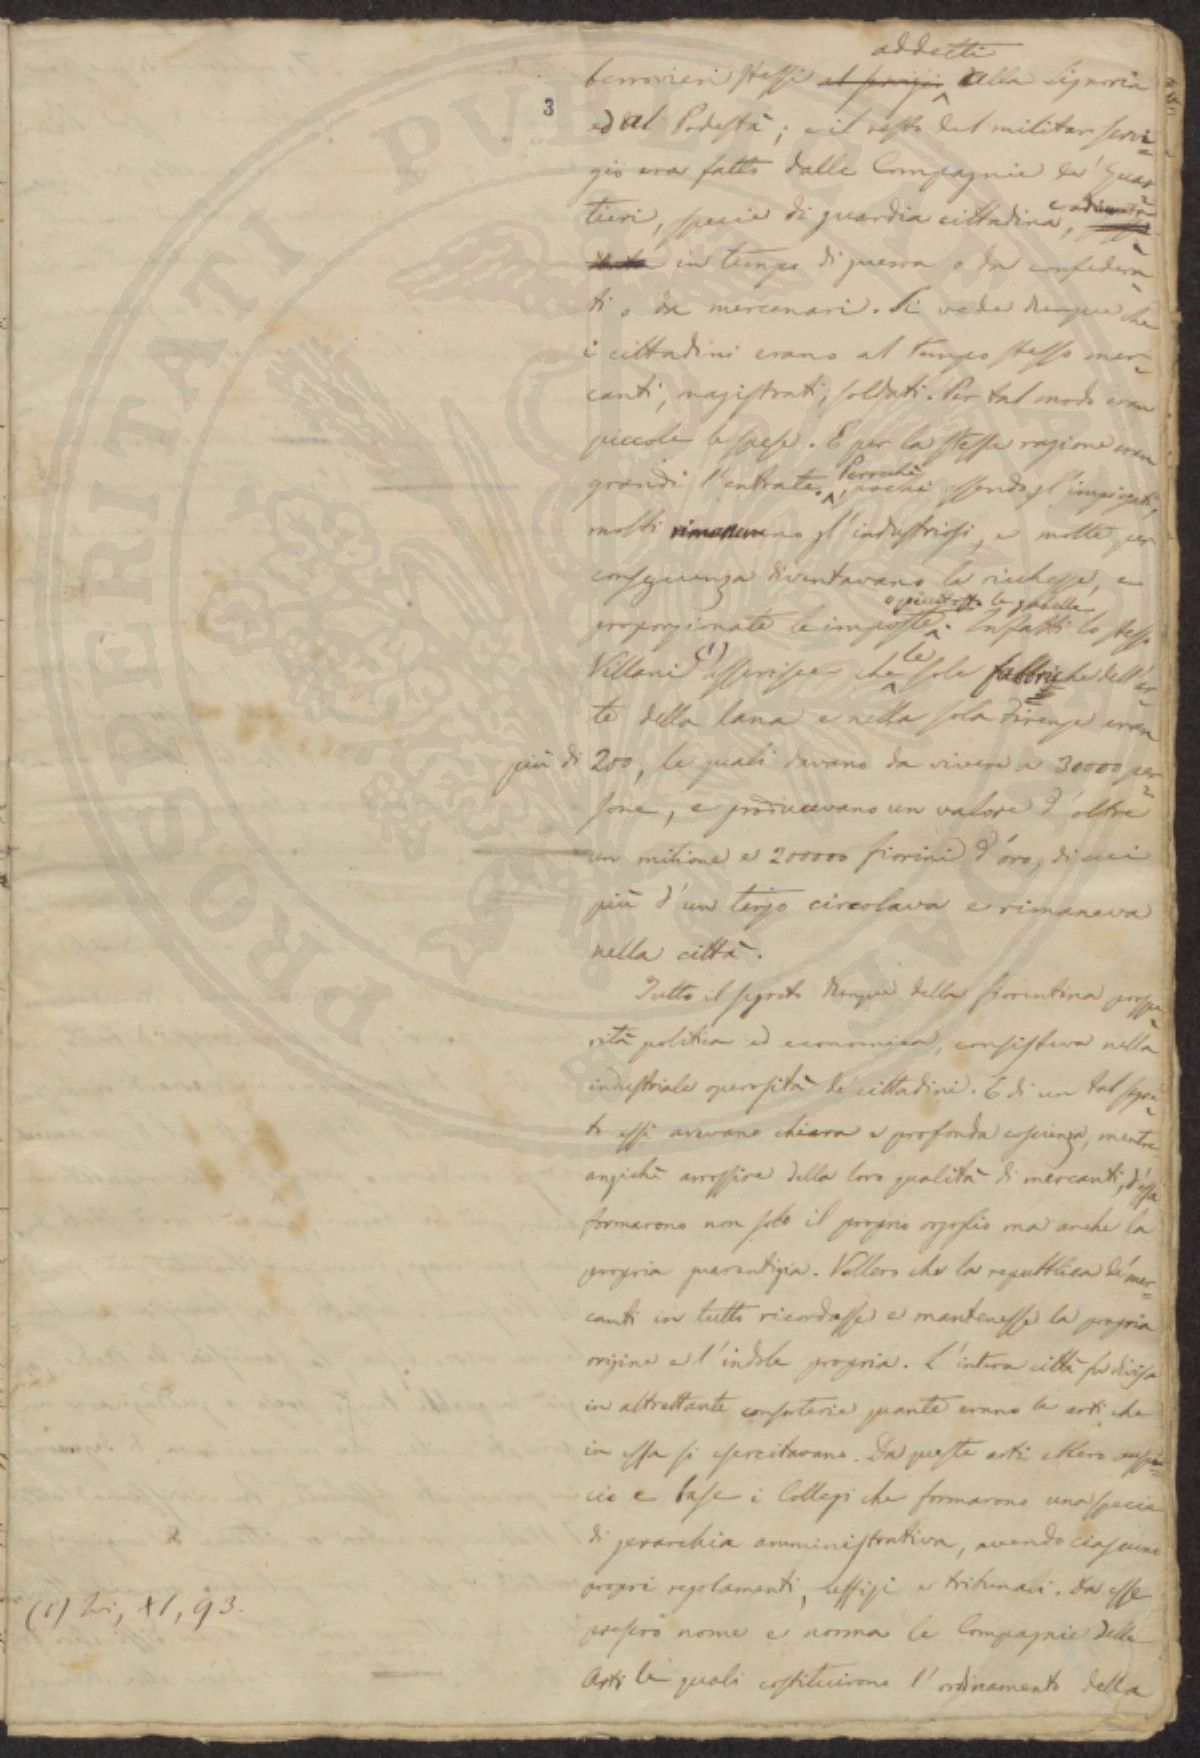 3
addetti
berrovieri stessi al servigio alla Signoria
ed al Podestà; e il resto del militar servi=
gio era fatto dalle Compagnie de' Quar=
tieri, specie di guardia cittadina, e
in tempo di guerra o da confedera=
ti o da mercenari. Si vede dunque che
i cittadini erano al tempo stesso mer=
canti, magistrati, soldati. Per tal modo eran
piccole le spese. E per la stessa ragione eran
grandi l'entrate. Perocchè pochi essendo gl'impiegati,
molti rimanevano gl'industriosi, e molte per
conseguenza diventavano le ricchesse, e
o piuttosto le gabelle
proporzionate le imposte. Infatti lo stesso
Villani (1) asserisce che le sole fabbriche dell'ar=
te della lana e nella sola Firenze eran
più di 200, le quali davano da vivere a 30000 per=
sone, e producevano un valore d'oltre
un milione e 200000 fiorini d'oro, di cui
più d'un terzo circolava e rimaneva
nella città.
Tutto il segreto dunque della fiorentina prospe=
rità politica ed economica, consisteva nella
industriale operosità de' cittadini. E di un tal segre=
to essi avevano chiara e profonda coscienza, mentre
anzichè arrossire della loro qualità di mercanti, d'essa
formarono non solo il proprio orgoglio ma anche la
propria guarentigia. Vollero che la repubblica de' mer=
canti in tutto ricordasse e mantenesse la propria
origine e l'indole propria. L'intera città fu divisa
in altrettante consorterie quante erano le arti che
in essa si esercitavano. Da queste arti ebbero auspi=
cio e base i Collegi che formarono una specie
di gerarchia amministrativa, avendo ciascuno
propri regolamenti, uffizi e tribunali. Da esse
presero nome e norma le Compagnie delle
Arti le quali costituirono l'ordinamento della
(1) Ivi, XI, 93.